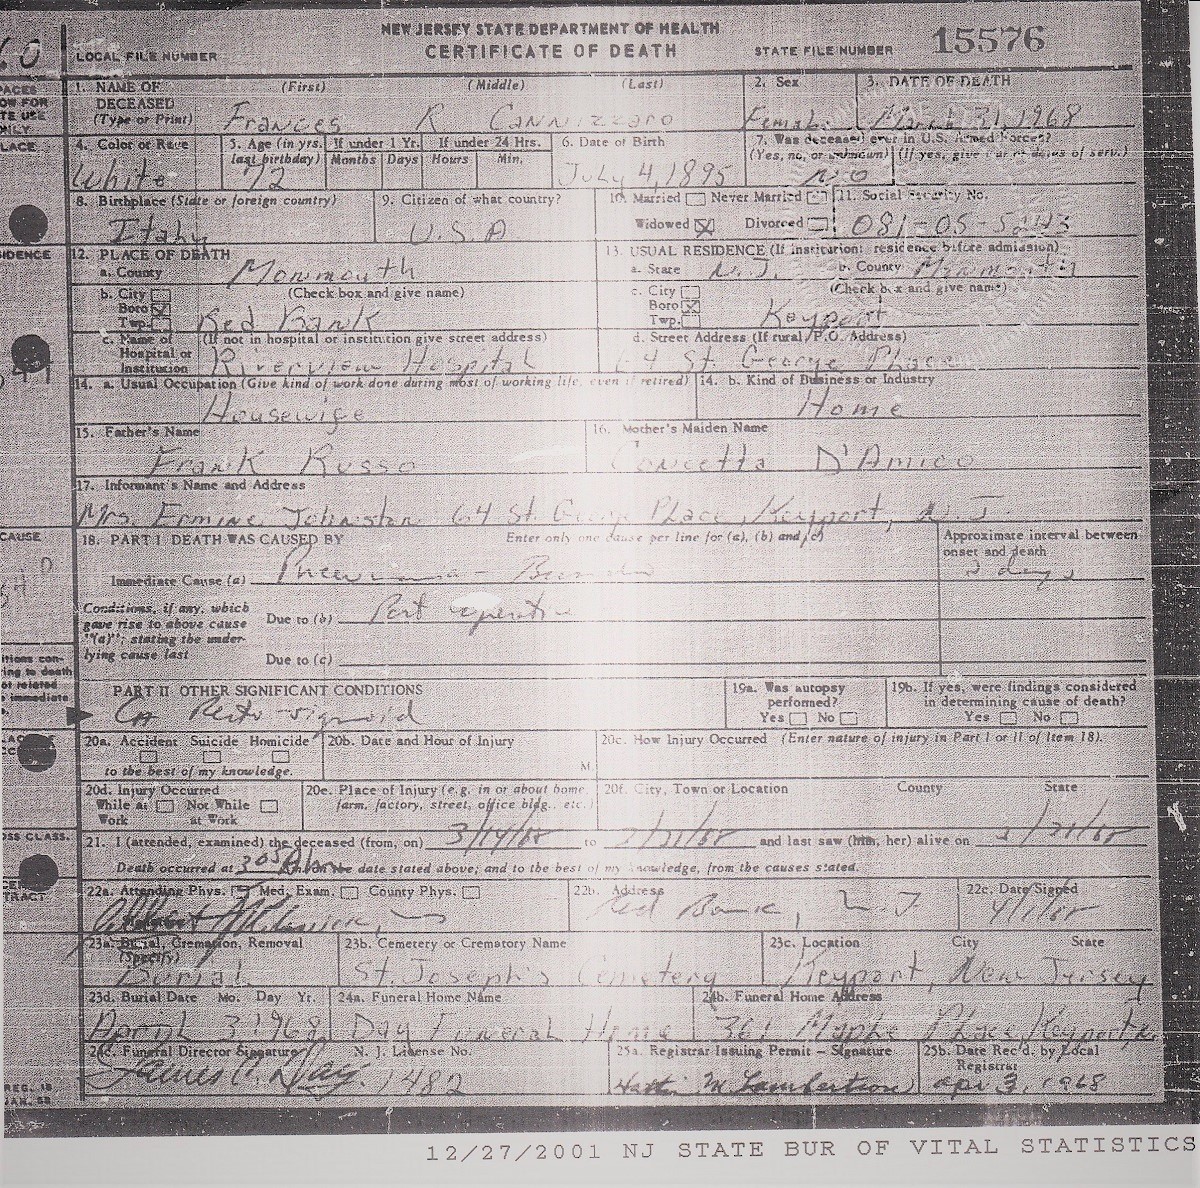 NEW JERSEY STATE DEPARTMENT OF HEALTH
CERTIFICATE OF DEATH
LOCAL FILE NUMBER
STATE FILE NUMBER 15576
1. NAME OF DECEASED (Type or Print) (First) (Middle) (Last)
Frances R Cannizzaro
2. Sex
Female
3. DATE OF DEATH
March 31, 1968
4. Color or Race
White
5. Age (in yrs. last birthday) If under 1 Yr. Months Days If under 24 Hrs. Hours Min.
72
6. Date of Birth
July 4, 1895
7. Was deceased ever in U.S. Armed Forces? (Yes, no, or unknown) (If yes, give war or dates of serv.)
NO
8. Birthplace (State or foreign country)
Italy
9. Citizen of what country?
U.S.A
10. Married Never Married
Widowed X Divorced
11. Social Security No.
081-05-
12. PLACE OF DEATH
a. County Monmouth
b. City Boro X Twp. (Check box and give name)
Red Bank
c. Name of Hospital or Institution (If not in hospital or institution give street address)
Riverview Hospital
13. USUAL RESIDENCE (If institution: residence before admission)
a. State N.J. b. County Monmouth
c. City Boro X Twp. (Check box and give name)
Keyport
d. Street Address (If rural P.O. Address)
64 St. George Place
14. a. Usual Occupation (Give kind of work done during most of working life, even if retired)
Housewife
14. b. Kind of Business or Industry
Home
15. Father's Name
Frank Russo
16. Mother's Maiden Name
Concetta D'Amico
17. Informant's Name and Address
Mrs. Ermine Johnston 64 St. George Place, Keyport, N.J
18. PART I DEATH WAS CAUSED BY Enter only one cause per line for (a), (b) and (c)
Approximate interval between onset and death
Immediate Cause (a) Pneumonia -
2 days
Conditions, if any, which gave rise to above cause "(a)"; stating the underlying cause last
Due to (b) Post operative
Due to (c)
PART II OTHER SIGNIFICANT CONDITIONS
Ca Recto-sigmoid
19a. Was autopsy performed? Yes No
19b. If yes, were findings considered in determining cause of death? Yes No
20a. Accident Suicide Homicide
to the best of my knowledge.
20b. Date and Hour of Injury
M.
20c. How Injury Occurred (Enter nature of injury in Part I or II of Item 18).
20d. Injury Occurred
While at Work Not While at Work
20e. Place of Injury (e.g. in or about home, farm, factory, street, office bldg., etc.)
20f. City, Town or Location County State
21. I (attended, examined) the deceased (from, on) 3/14/68 to 3/31/68 and last saw (him, her) alive on 3/31/68
Death occurred at 3 05 A.m. on the date stated above; and to the best of my knowledge, from the causes stated.
22a. Attending Phys. Med. Exam. County Phys.
22b. Address
Red Bank, N.J
22c. Date Signed
4/1/68
23a. Burial, Cremation, Removal (Specify)
Burial
23b. Cemetery or Crematory Name
St. Joseph's Cemetery
23c. Location City State
Keyport, New Jersey
23d. Burial Date Mo. Day Yr.
April 3 1968
24a. Funeral Home Name
Day Funeral Home
24b. Funeral Home Address
361 Maple Place, Keyport,
24c. Funeral Director Signature N. J. License No.
James A. Day 1482
25a. Registrar Issuing Permit – Signature
M. Lambertson
25b. Date Rec'd. by Local Registrar
Apr 3, 1968
12/27/2001 NJ STATE BUR OF VITAL STATISTICS